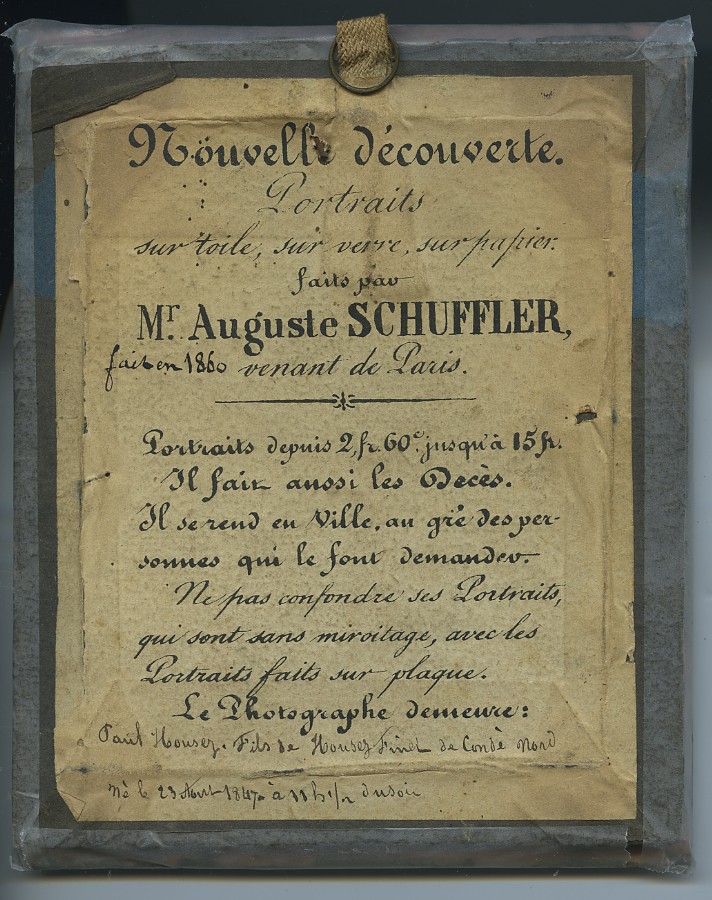 Nouvelle découverte.
Portraits
sur toile, sur verre, sur papier.
faits par
Mr. Auguste SCHUFFLER,
fait en 1860 venant de Paris.
Portraits depuis 2,fr.60c. jusqu'à 15 fr.
Il fait aussi les Decès.
Il se rend en Ville, au gré des per-
sonnes qui le font demander.
Ne pas confondre ses Portraits,
qui sont sans miroitage, avec les
Portraits faits sur plaque.
Le Photographe demeure:
Paul Housez. Fils de Housez Finet de Condé Nord
Né le 23 1847 à 11 h 1/2 du soir